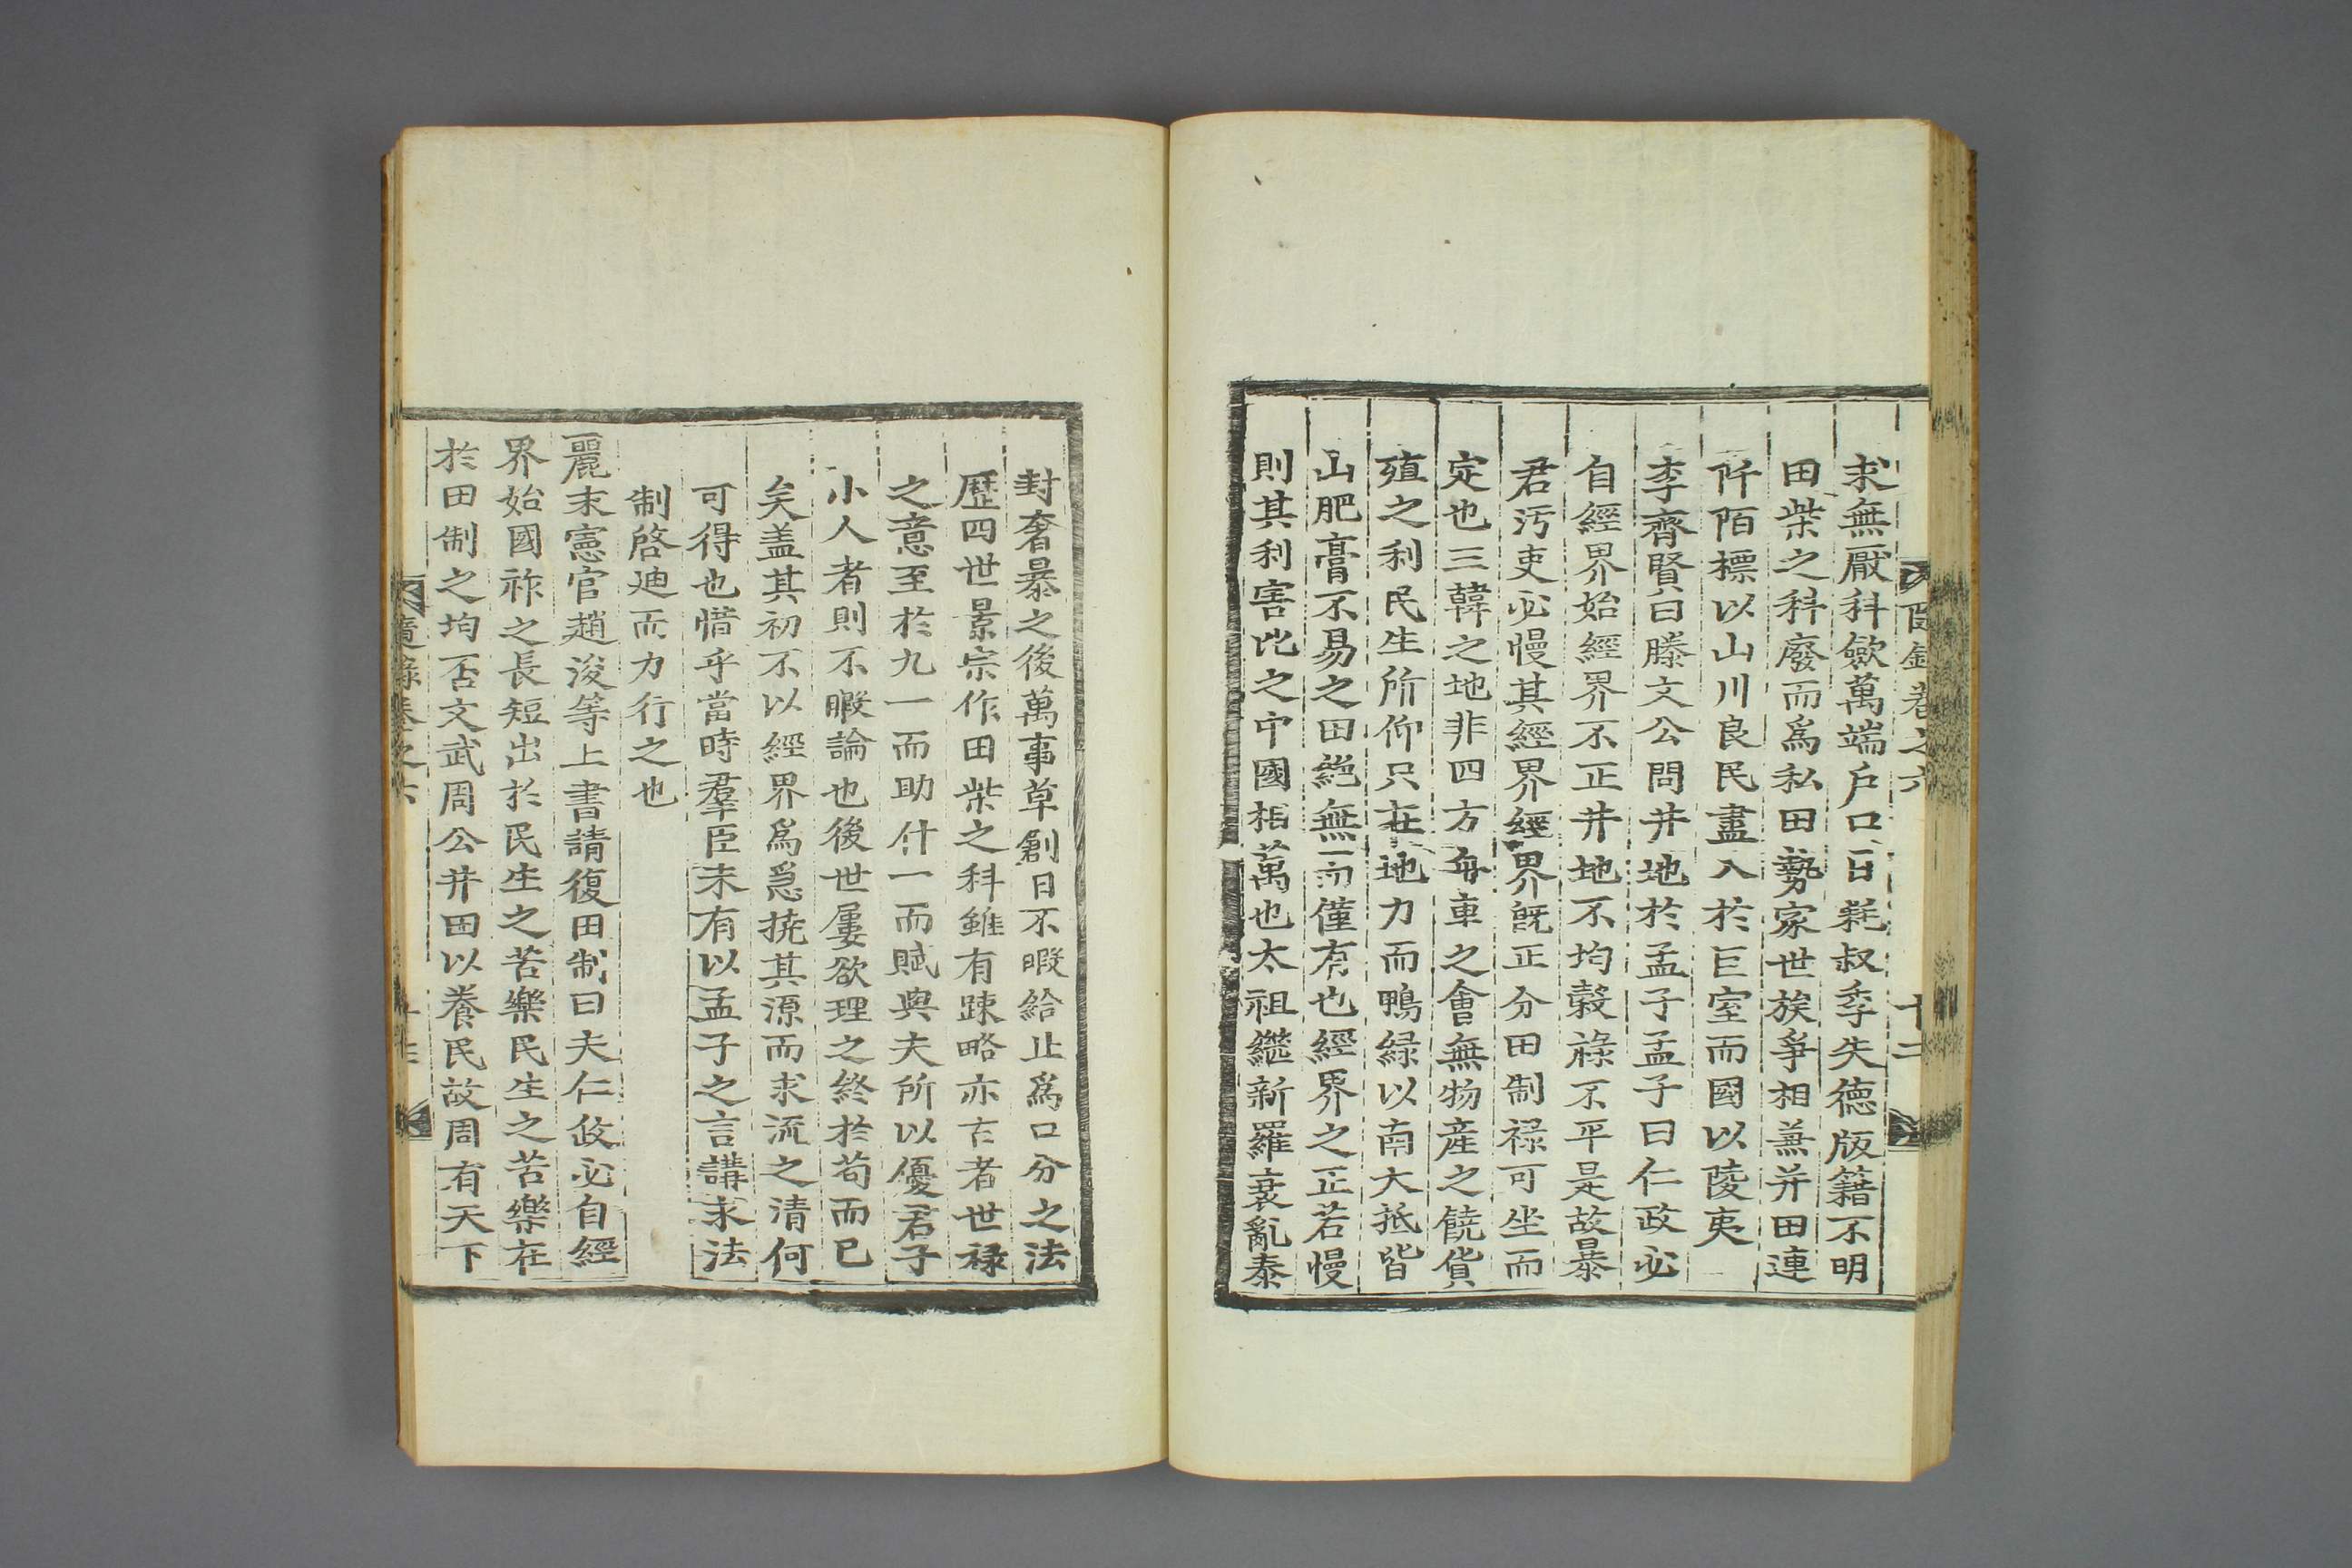 求無厭科歛萬端戶口日耗叔季失德版籍不明
田柴之科廢而爲私田勢家世族爭相兼并田連
阡陌標以山川良民盡入於巨室而國以陵夷
李齊賢曰滕文公問井地於孟子孟子曰仁政必
自經界始經界不正井地不均穀祿不平是故暴
君汚吏必慢其經界經界旣正分田制祿可坐而
定也三韓之地非四方舟車之會無物産之饒貨
殖之利民生所仰只在地力而鴨綠以南大抵皆
山肥膏不易之田絶無而僅有也經界之正若慢
則其利害比之中國相萬也太祖繼新羅衰亂泰
封奢暴之後萬事草創日不暇給止爲口分之法
歷四世景宗作田柴之科雖有踈略亦古者世祿
之意至於九一而助什一而賦與夫所以優君子
小人者則不暇論也後世屢欲理之終於苟而已
矣盖其初不以經界爲急撓其源而求流之清何
可得也惜乎當時羣臣未有以孟子之言講求法
制啓迪而力行之也
麗末憲官趙浚等上書請復田制曰夫仁政必自經
界始國祚之長短出於民生之苦樂民生之苦樂在
於田制之均否文武周公井田以養民故周有天下